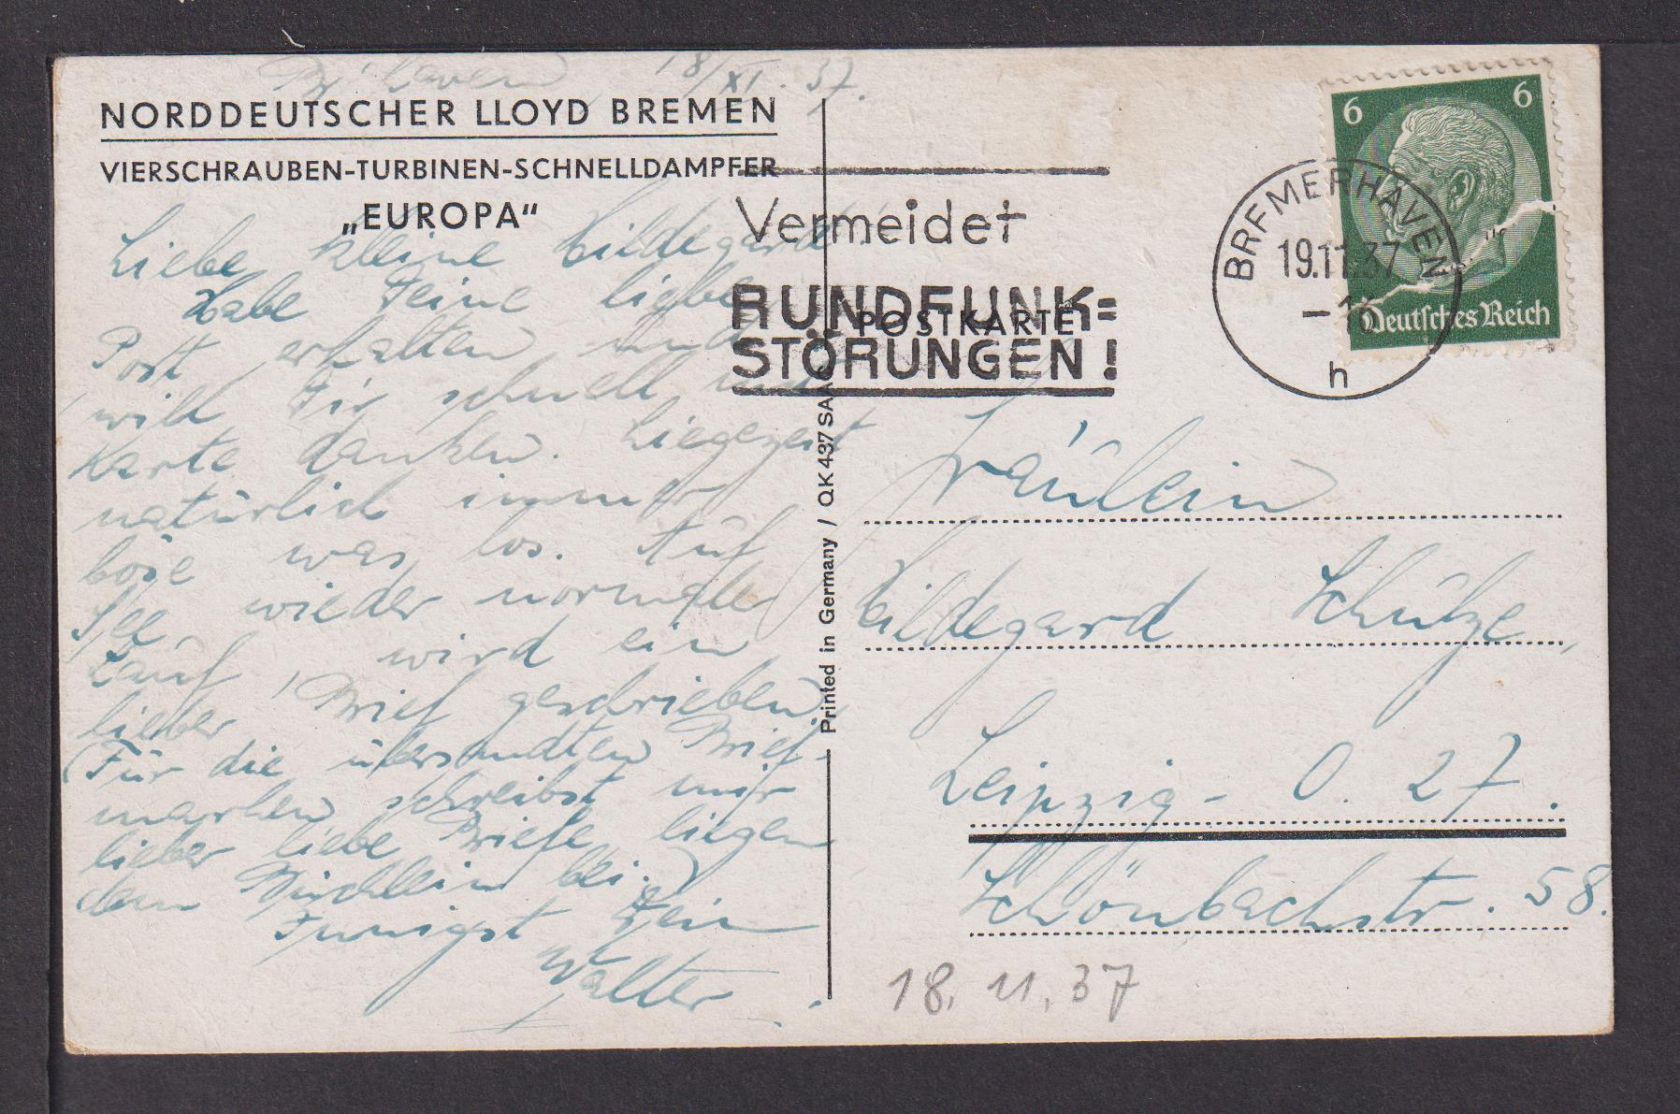 Br'haven, 18/XI. 37.
NORDDEUTSCHER LLOYD BREMEN
VIERSCHRAUBEN-TURBINEN-SCHNELLDAMPFER
„EUROPA“
Liebe kleine Hildegard!
Habe Deine liebe
Post erhalten und
will Dir schnell mit
Karte danken. Liegezeit
natürlich immer
böse was los. Auf
See wieder normaler
Lauf, wird ein
lieber Brief geschrieben.
(Für die übersandten Brief-
marken schreibst mir
lieber liebe Briefe liegen
dem bei.)
Innigst Dein
Walter.
Vermeidet
RUNDFUNK=
STÖRUNGEN!
POSTKARTE
6 6
Deutsches Reich
BREMERHAVEN
19.11.37
h
Printed in Germany / QK 437 SAA
Fräulein
Hildegard Schütze,
Leipzig- O. 27.
Schönbachstr. 58.
18. 11. 37